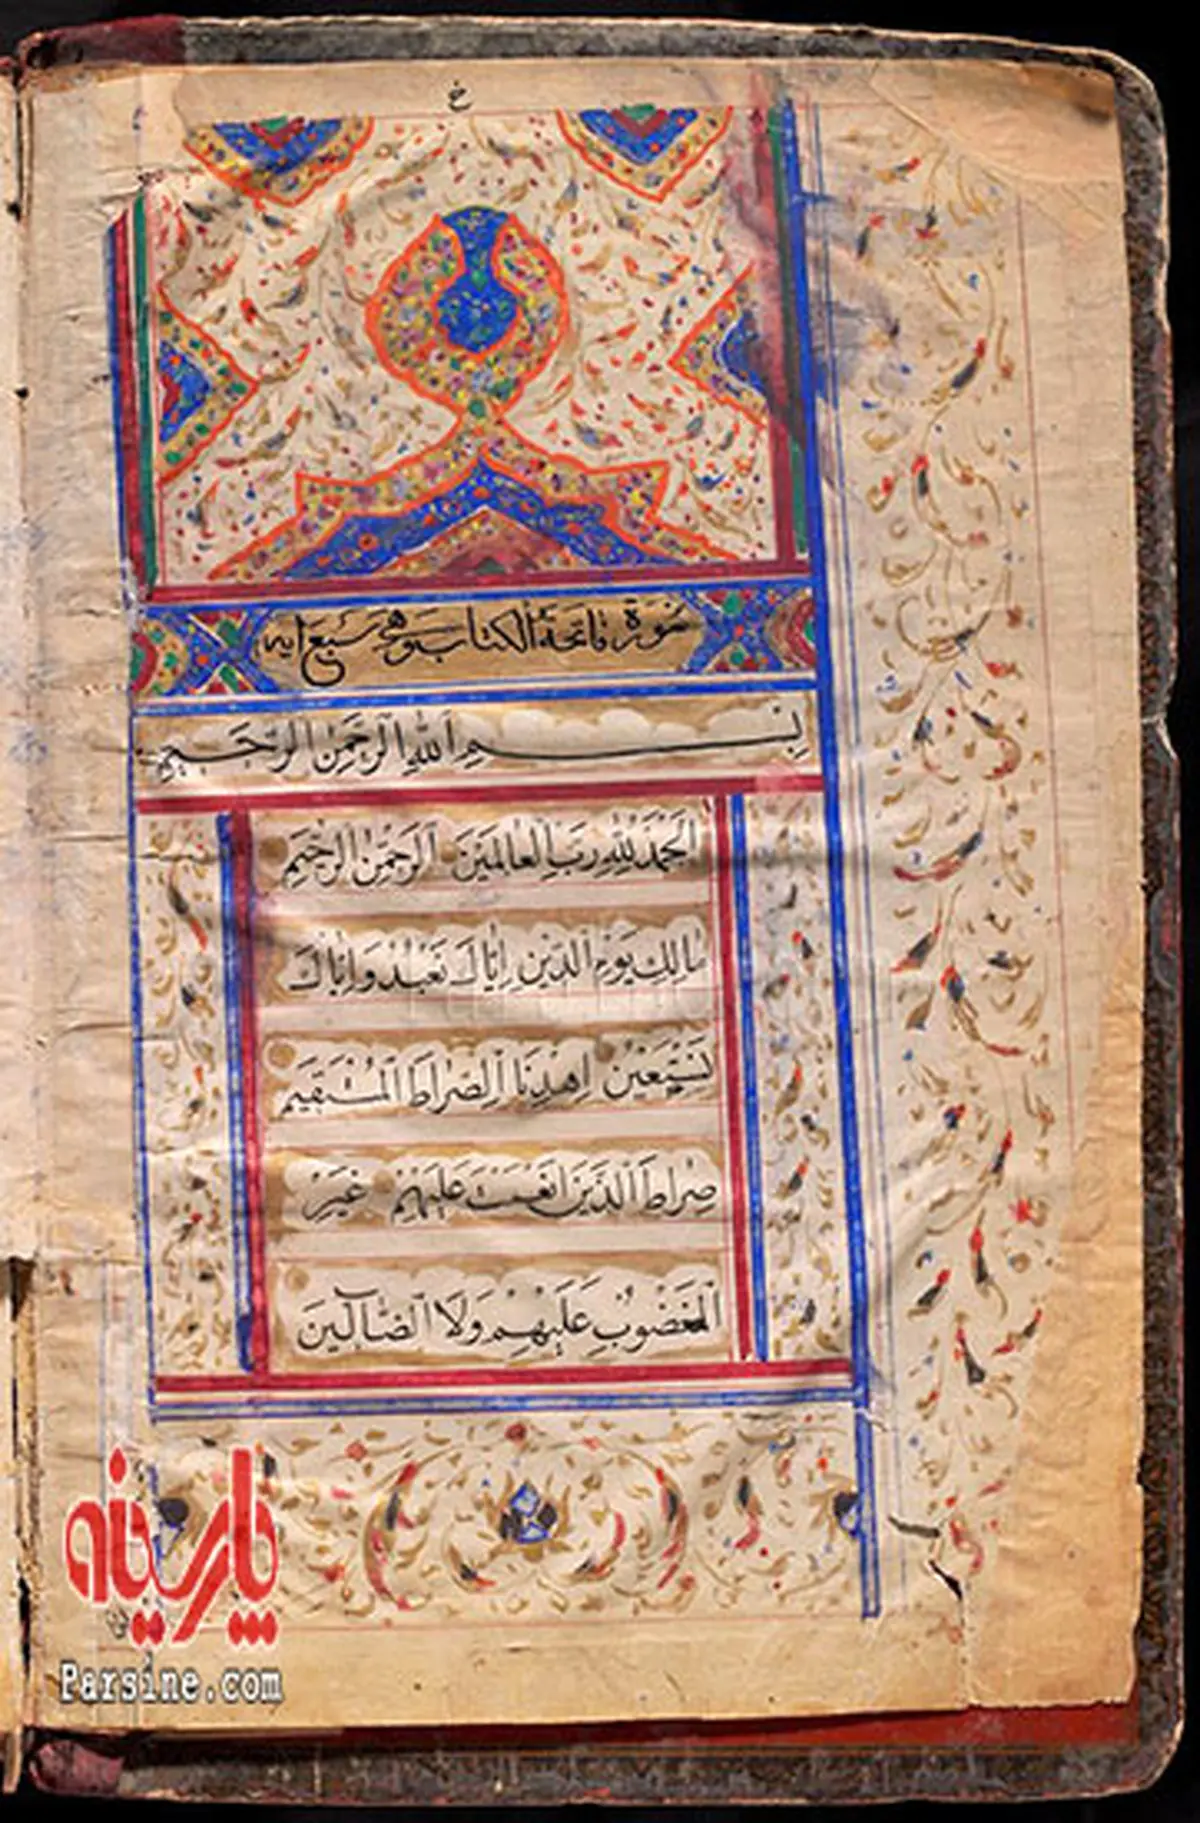 ع
سورة فاتحة الكتاب وهي سبع ايه
بِسْمِ اللهِ الرَّحْمٰنِ الرَّحِيمِ
اَلْحَمْدُ لِلّٰهِ رَبِّ الْعَالَمِينَ اَلرَّحْمٰنِ الرَّحِيمِ
مَالِكِ يَوْمِ الدِّينِ اِيَّاكَ نَعْبُدُ وَاِيَّاكَ
نَسْتَعِينُ اِهْدِنَا الصِّرَاطَ الْمُسْتَقِيمَ
صِرَاطَ الَّذِينَ اَنْعَمْتَ عَلَيْهِمْ غَيْرِ
الْمَغْضُوبِ عَلَيْهِمْ وَلَا الضَّالِّينَ
پارسینه
Parsine.com